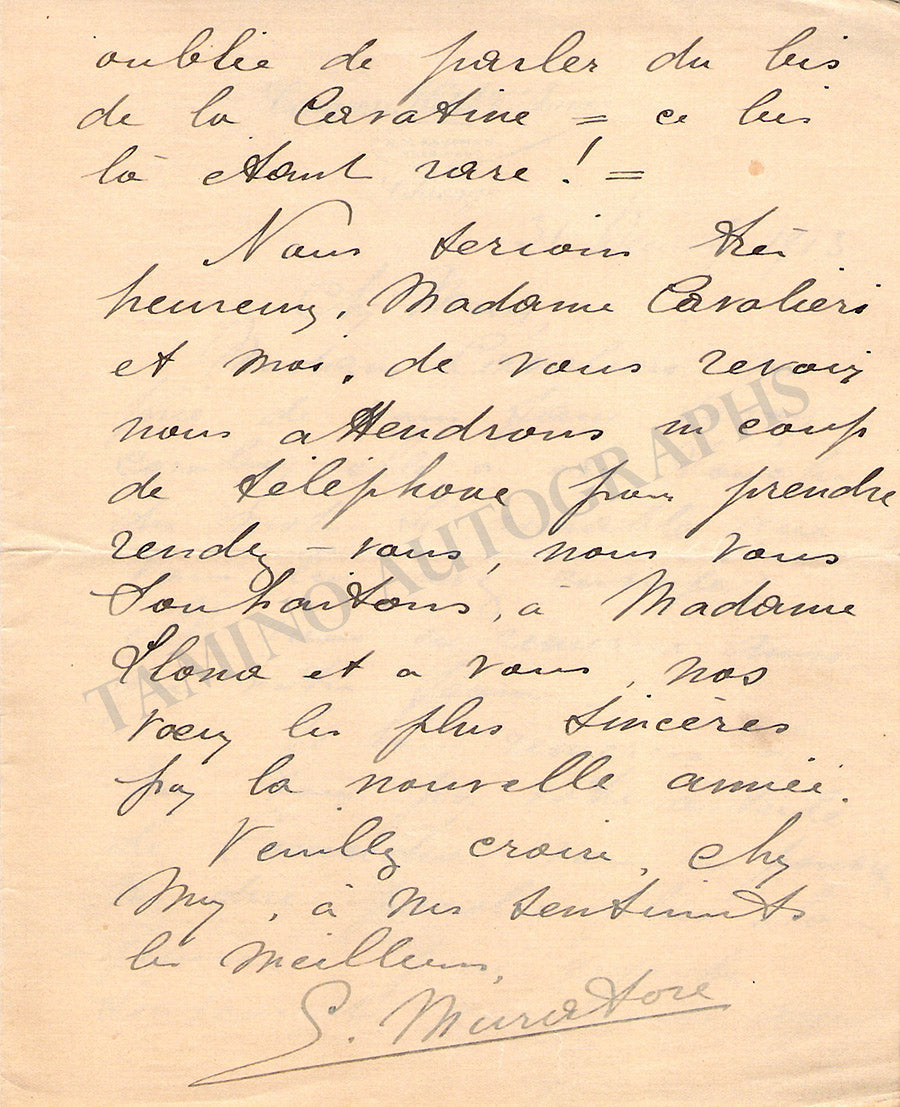 oublie de parler du bis
de la Cavatine = ce bis
là étant rare ! =
Nous serions très
heureux, Madame Cavalieri
et moi, de vous revoir
nous attendrons un coup
de téléphone pour prendre
rendez-vous, nous vous
souhaitons, à Madame
Ilona et a vous, nos
vœux les plus sincères
pour la nouvelle année.
Veuillez croire, cher
, à nos sentiments
les meilleurs,
L. Muratore
TAMINO AUTOGRAPHS